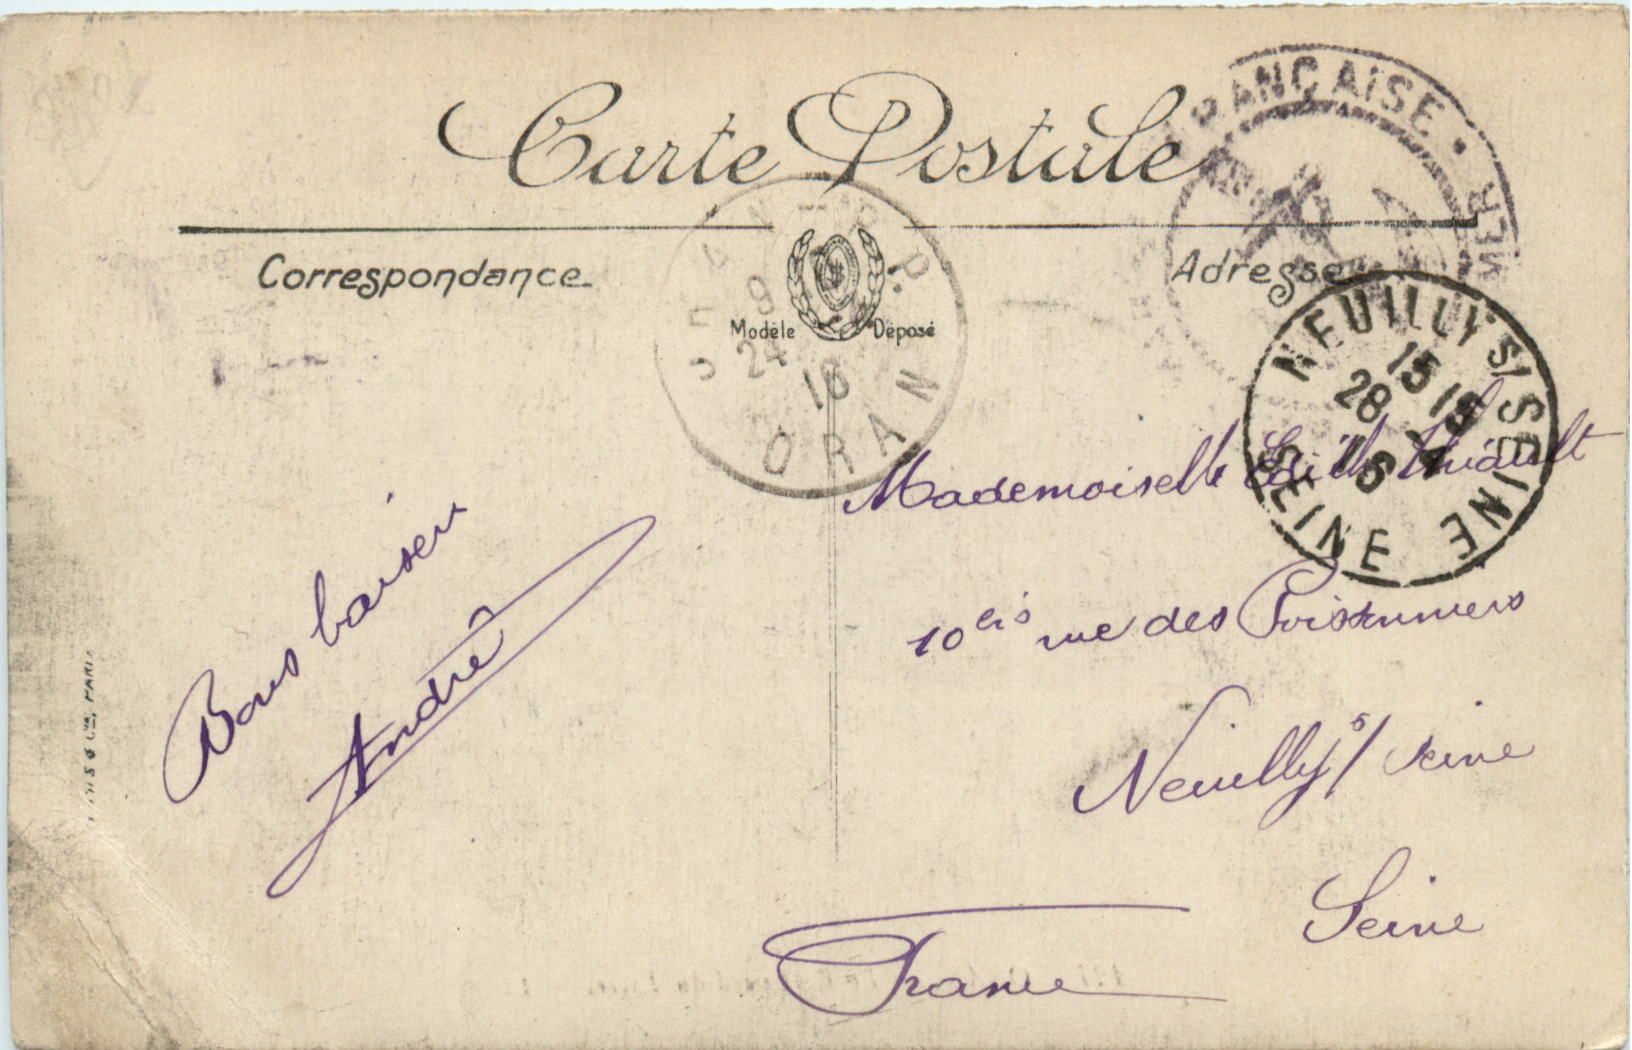 Carte Postale
FRANÇAISE • MER
Correspondance
Adresse
Modèle Déposé
9
24
16
ORAN
NEUILLY S/ SEINE
15 15
28
16
SEINE
Mademoiselle Edith Thiault
10 bis rue des Poissonniers
Neuilly s/ Seine
Seine
France
Bons baisers
André
& Cie, PARIS